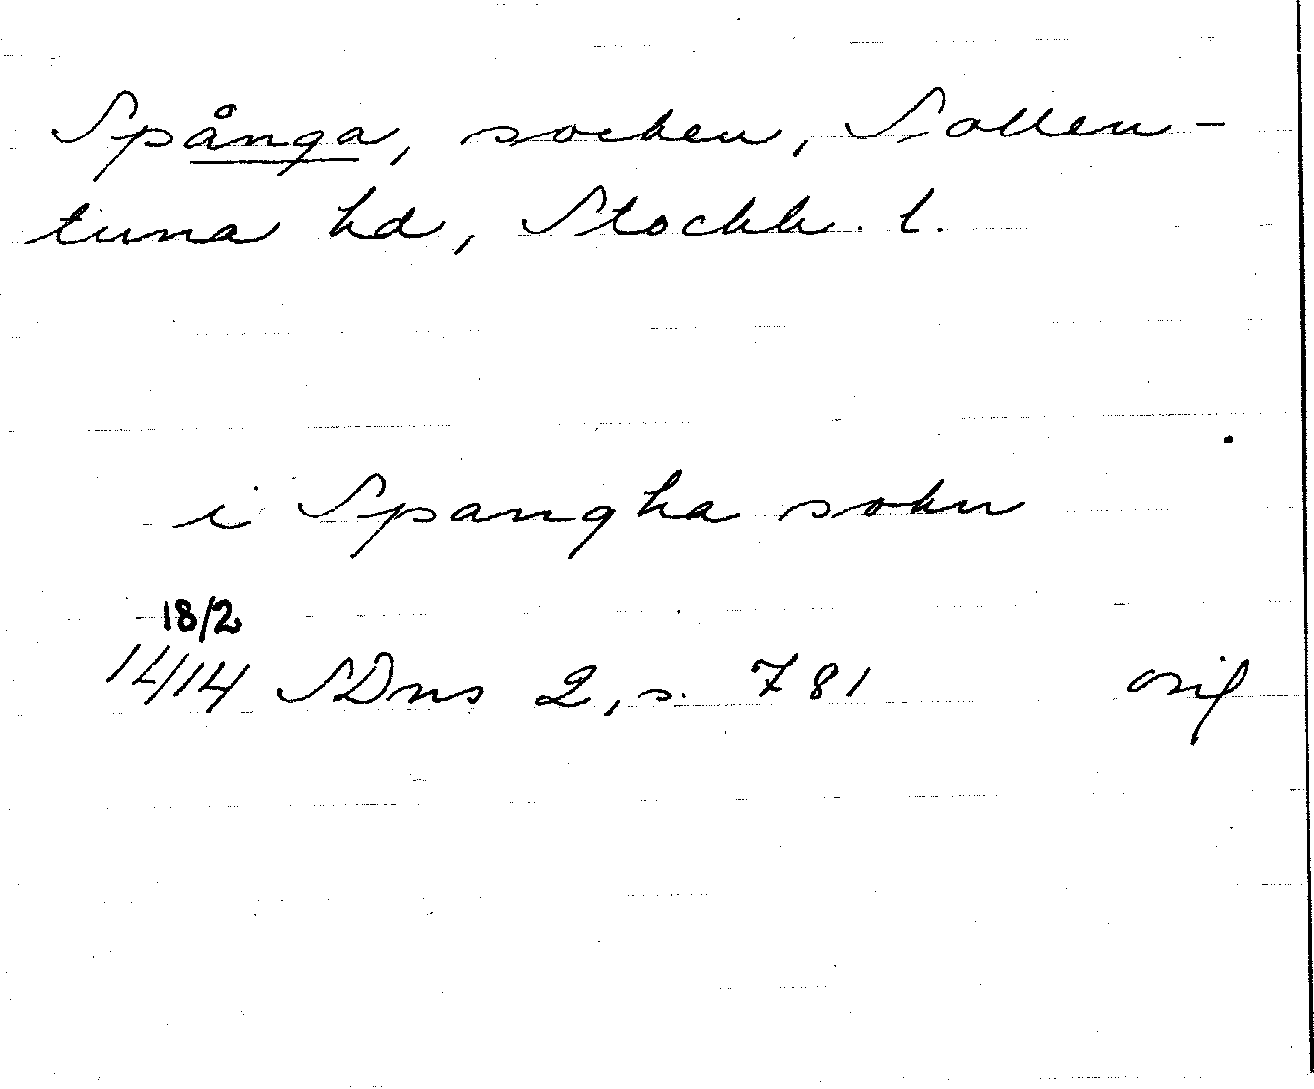 Spånga, socken, Sollen-
tuna hd, Stockh. l.
i Spangha sokn
18/2
1414 SDns 2, s. 781 orig